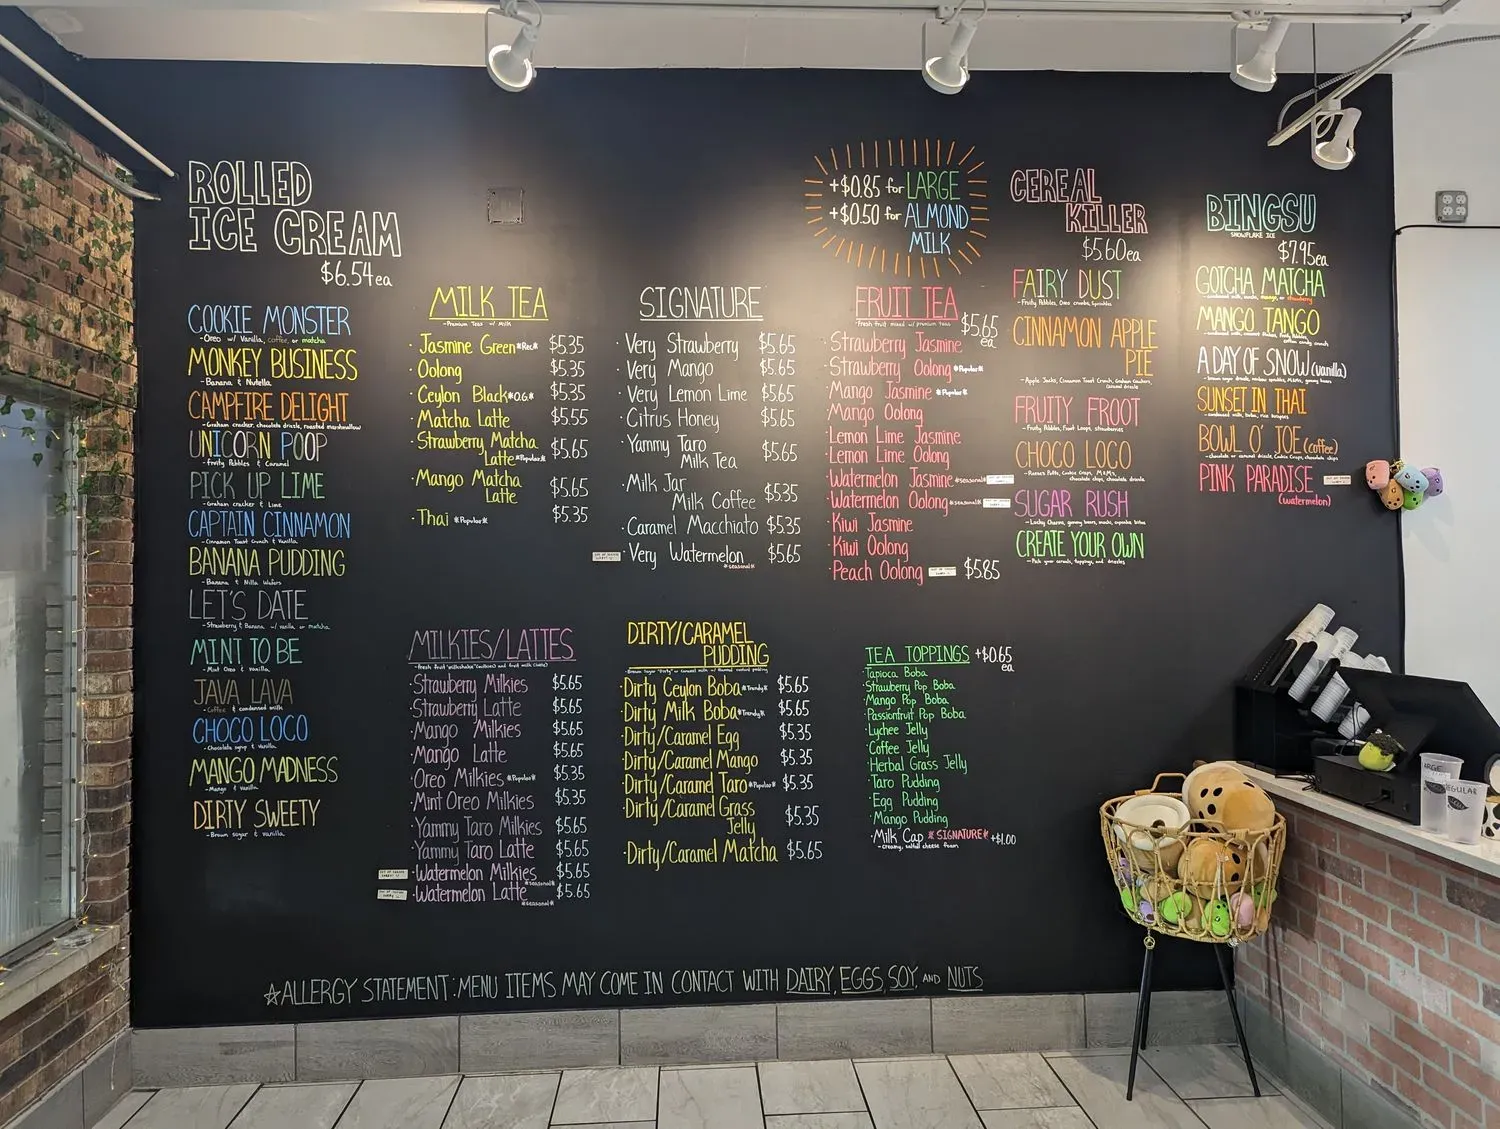 ROLLED
ICE CREAM
$6.54 ea
COOKIE MONSTER
-Oreo w/ Vanilla, coffee, or matcha
MONKEY BUSINESS
-Banana & Nutella
CAMPFIRE DELIGHT
-Graham cracker, chocolate drizzle, roasted marshmallow
UNICORN POOP
-Fruity Pebbles & Caramel
PICK UP LIME
-Graham cracker & Lime
CAPTAIN CINNAMON
-Cinnamon Toast Crunch & Vanilla
BANANA PUDDING
-Banana & Nilla Wafers
LET'S DATE
-Strawberry & Banana w/ vanilla or matcha
MINT TO BE
-Mint Oreo & Vanilla
JAVA LAVA
-Coffee & condensed milk
CHOCO LOCO
-Chocolate syrup & Vanilla
MANGO MADNESS
-Mango & Vanilla
DIRTY SWEETY
-Brown sugar & vanilla
MILK TEA
-Premium Teas w/ Milk
·Jasmine Green *Rec* $5.35
·Oolong $5.35
·Ceylon Black *O.G.* $5.35
·Matcha Latte $5.55
·Strawberry Matcha
Latte *Popular* $5.65
·Mango Matcha
Latte $5.65
·Thai *Popular* $5.35
SIGNATURE
·Very Strawberry $5.65
·Very Mango $5.65
·Very Lemon Lime $5.65
·Citrus Honey $5.65
·Yammy Taro
Milk Tea $5.65
·Milk Jar
Milk Coffee $5.35
·Caramel Macchiato $5.35
·Very Watermelon $5.65
*seasonal*
+$0.85 for LARGE
+$0.50 for ALMOND
MILK
FRUIT TEA
-Fresh fruit mixed w/ premium teas
$5.65
ea
·Strawberry Jasmine
·Strawberry Oolong *Popular*
·Mango Jasmine *Popular*
·Mango Oolong
·Lemon Lime Jasmine
·Lemon Lime Oolong
·Watermelon Jasmine *seasonal*
·Watermelon Oolong *seasonal*
·Kiwi Jasmine
·Kiwi Oolong
·Peach Oolong $5.85
CEREAL
KILLER
$5.60 ea
FAIRY DUST
-Fruity Pebbles, Oreo crumbs, Sprinkles
CINNAMON APPLE
PIE
-Apple Jacks, Cinnamon Toast Crunch, Graham Crackers,
caramel drizzle
FRUITY FROOT
-Fruity Pebbles, Froot Loops, strawberries
CHOCO LOCO
-Reese's Puffs, Cookie Crisps, M&M's,
chocolate chips, chocolate drizzle
SUGAR RUSH
-Lucky Charms, gummy bears, mochi, cupcake bites
CREATE YOUR OWN
-Pick your cereals, toppings, and drizzles
BINGSU
SNOWFLAKE ICE
$7.95 ea
GOTCHA MATCHA
-condensed milk, mochi, mango, or strawberry
MANGO TANGO
A DAY OF SNOW (vanilla)
-brown sugar drizzle, rainbow sprinkles, M&M's, gummy bears
SUNSET IN THAI
BOWL O' JOE (coffee)
-chocolate or caramel drizzle, Cookie Crisps, chocolate chips
PINK PARADISE
(watermelon)
MILKIES/LATTES
-fresh fruit "milkshake" (milkies) and fruit milk (latte)
·Strawberry Milkies $5.65
·Strawberry Latte $5.65
·Mango Milkies $5.65
·Mango Latte $5.65
·Oreo Milkies *Popular* $5.35
·Mint Oreo Milkies $5.35
·Yammy Taro Milkies $5.65
·Yammy Taro Latte $5.65
·Watermelon Milkies $5.65
*seasonal*
·Watermelon Latte $5.65
*seasonal*
DIRTY/CARAMEL
PUDDING
·Dirty Ceylon Boba *Trendy* $5.65
·Dirty Milk Boba *Trendy* $5.65
·Dirty/Caramel Egg $5.35
·Dirty/Caramel Mango $5.35
·Dirty/Caramel Taro *Popular* $5.35
·Dirty/Caramel Grass
Jelly $5.35
·Dirty/Caramel Matcha $5.65
TEA TOPPINGS +$0.65
ea
·Tapioca Boba
·Strawberry Pop Boba
·Mango Pop Boba
·Passionfruit Pop Boba
·Lychee Jelly
·Coffee Jelly
·Herbal Grass Jelly
·Taro Pudding
·Egg Pudding
·Mango Pudding
·Milk Cap *SIGNATURE* +$1.00
-creamy, salted cheese foam
☆ALLERGY STATEMENT: MENU ITEMS MAY COME IN CONTACT WITH DAIRY, EGGS, SOY, AND NUTS
REGULAR